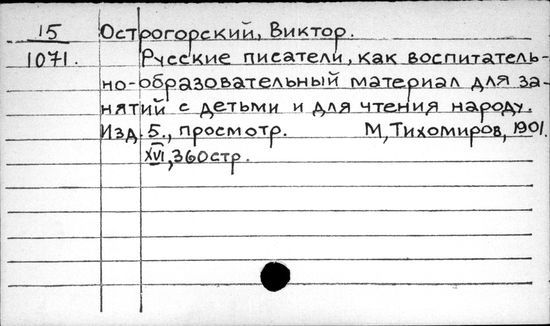 15 Острогорский, Виктор.
1071. Русские писатели, как воспитатель-
но-образовательный материал для за-
нятий с детьми и для чтения народу.
Изд. 5., просмотр. М, Тихомиров, 1901.
XVI, 360стр.